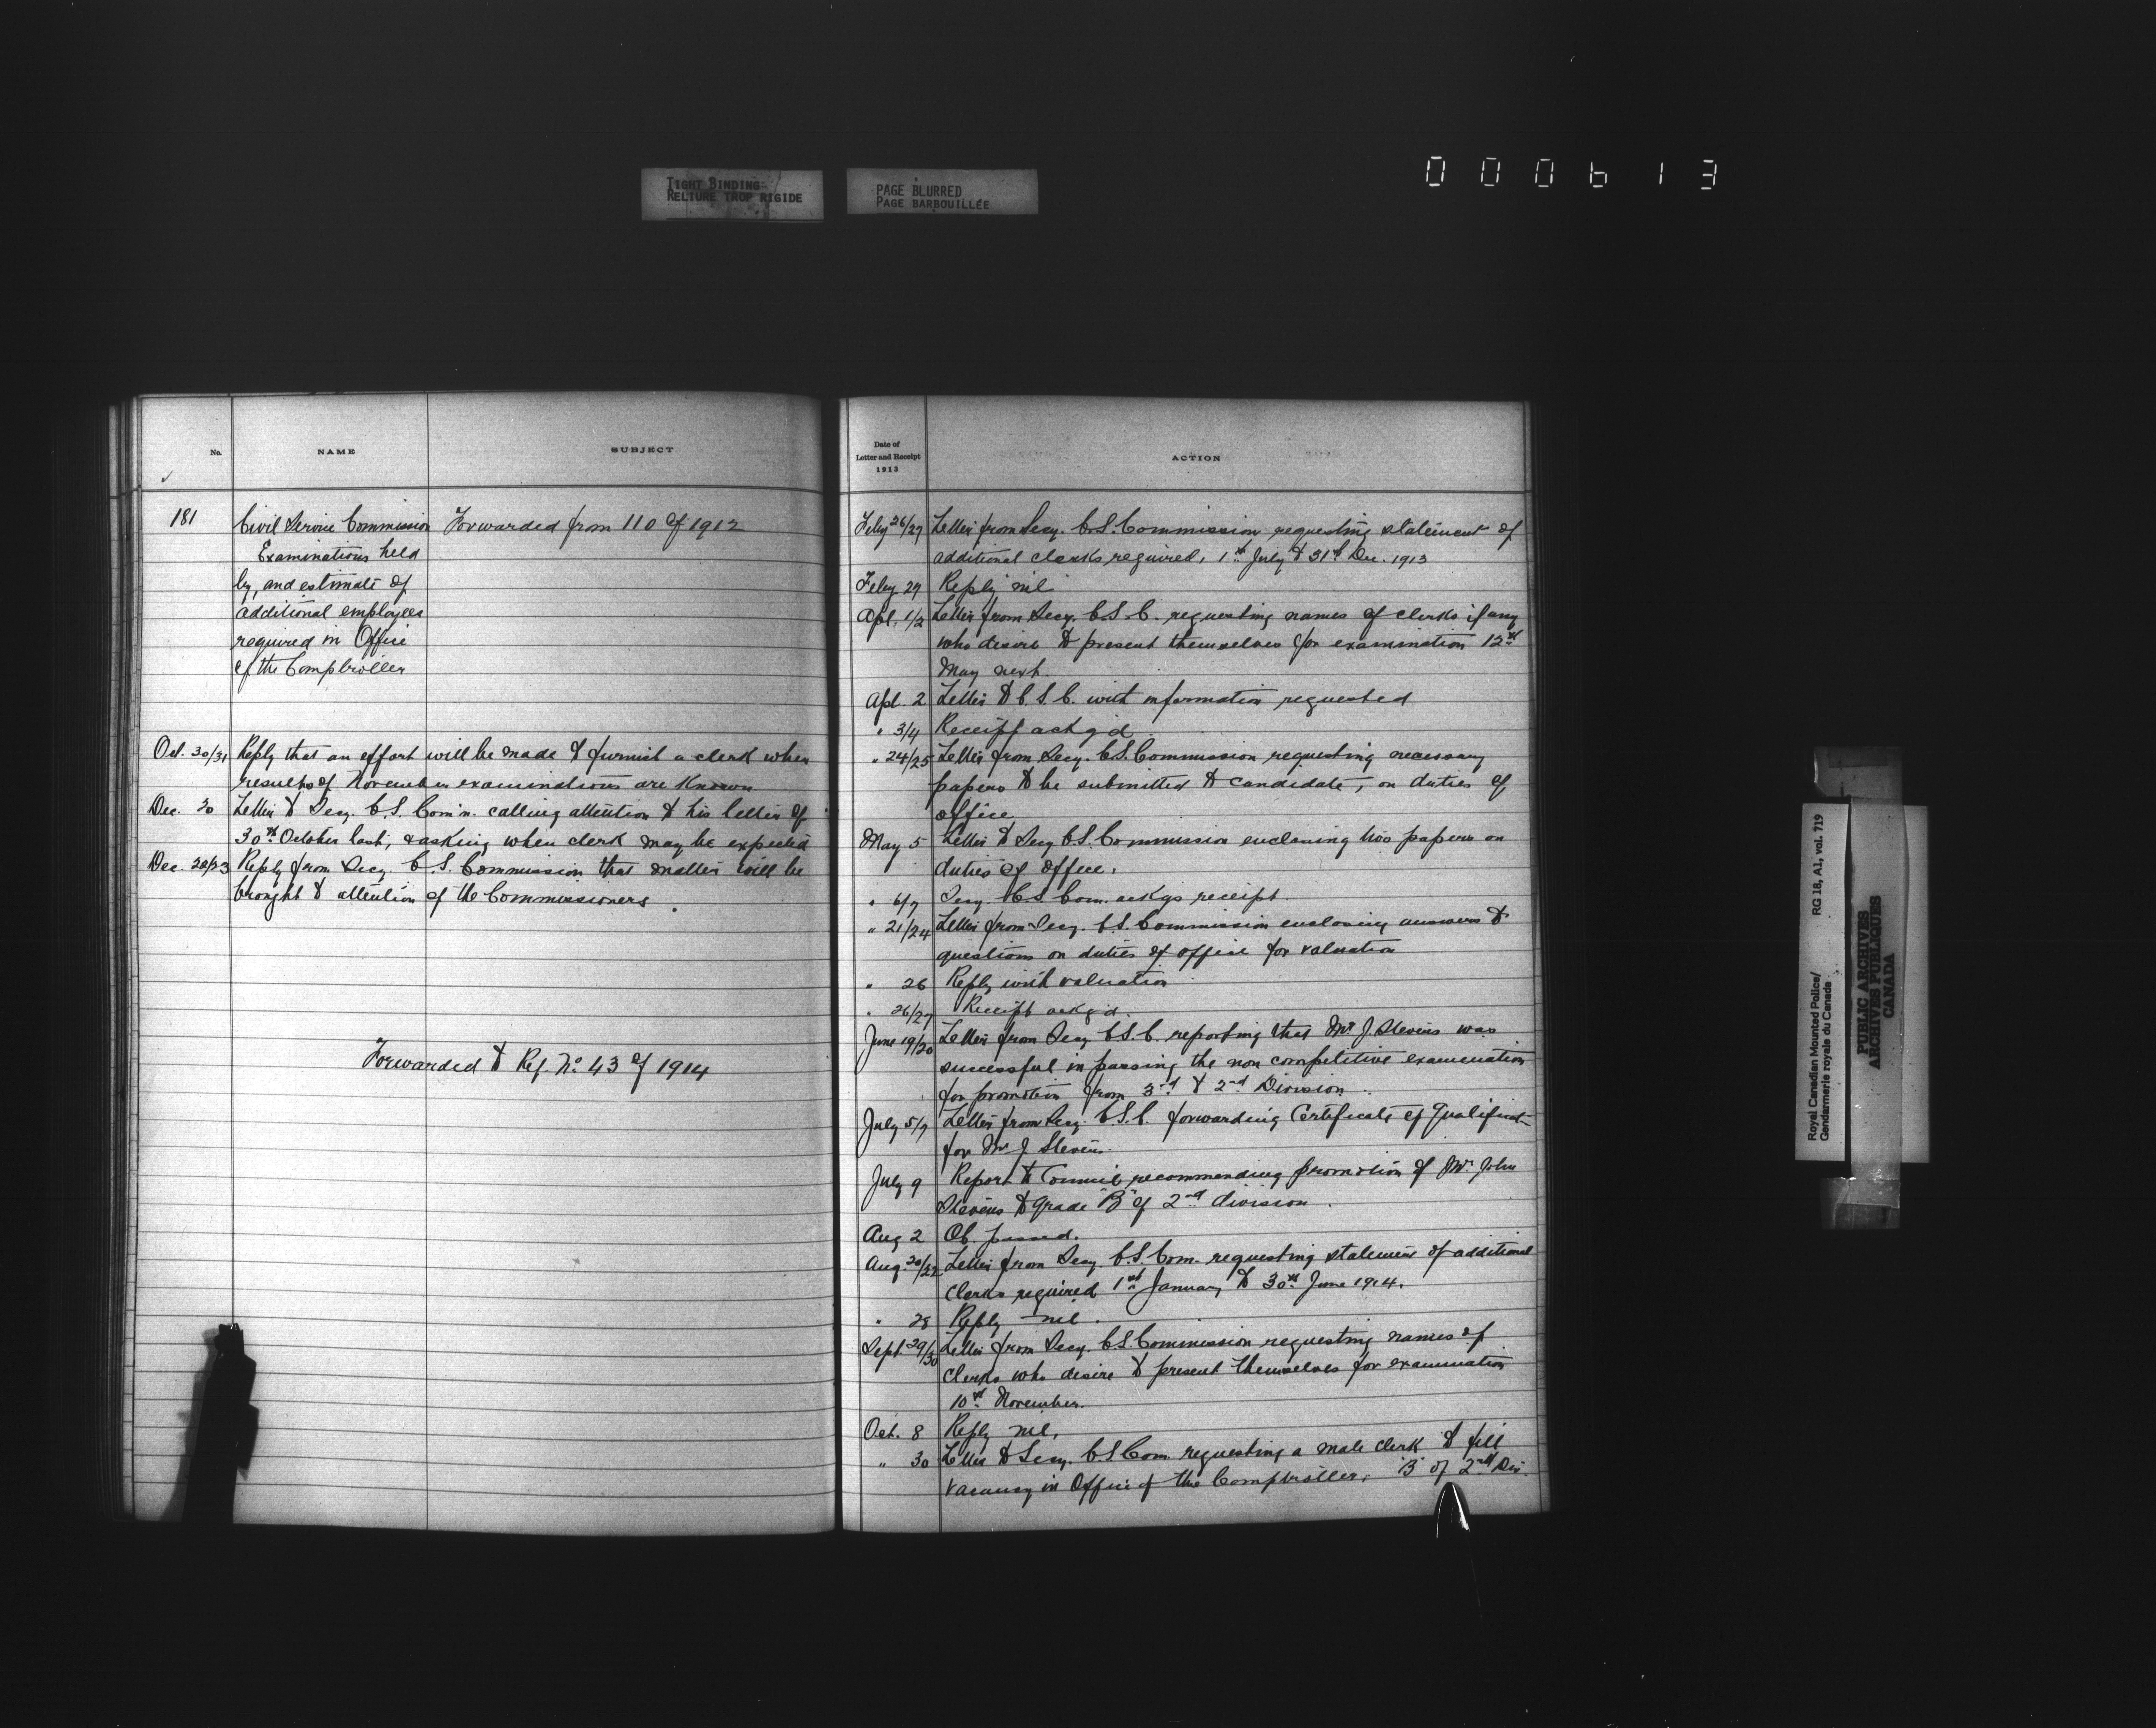 TIGHT BINDING
RELIURE TROP RIGIDE
PAGE BLURRED
PAGE BARBOUILLÉE
000613
No. NAME SUBJECT
181 Civil Service Commission Forwarded from 110 of 1912
Examinations held
by, and estimate of
additional employees
required in Office
of the Comptroller
Oct. 30/31 Reply that an effort will be made to furnish a clerk when
results of November examinations are known
Dec. 20 Letter to Secy. C.S. Com'n. calling attention to his letter of
30th October last, & asking when clerk may be expected
Dec. 20/23 Reply from Secy. C.S. Commission that matter will be
brought to attention of the Commissioners.
Forwarded to Reg. No. 43 of 1914
Date of
Letter and Receipt
1913
ACTION
Feby 26/27 Letter from Secy. C.S. Commission requesting statement of
additional clerks required, 1st July to 31st Dec. 1913
Feby 27 Reply nil
Apl. 1/2 Letter from Secy. C.S.C. requesting names of clerks if any
who desire to present themselves for examination 12th
May next.
Apl. 2 Letter to C.S.C. with information requested
" 3/4 Receipt ackg'd.
" 24/25 Letter from Secy. C.S. Commission requesting necessary
papers to be submitted to candidate, on duties of
office
May 5 Letter to Secy C.S. Commission enclosing two papers on
duties of office.
" 6/7 Secy. C.S. Com. ackgs receipt.
" 21/24 Letter from Secy. C.S. Commission enclosing answers to
questions on duties of office for valuation
" 26 Reply with valuation
" 26/27 Receipt ackg'd.
June 19/20 Letter from Secy C.S.C. reporting that Mr J. Stevens was
successful in passing the non competitive examination
for promotion from 3rd to 2nd Division.
July 5/7 Letter from Secy. C.S.C. forwarding Certificate of Qualificat-
for Mr J Stevens.
July 9 Report to Council recommending promotion of Mr. John
Stevens to grade "B" of 2nd division.
Aug 2 O.C. passed.
Aug. 20/22 Letter from Secy. C.S. Com. requesting statement of additional
clerks required 1st January to 30th June 1914.
" 28 Reply - nil.
Sept. 29/30 Letter from Secy. C.S. Commission requesting names of
clerks who desire to present themselves for examination
10th November.
Oct. 8 Reply nil.
" 30 Letter to Secy. C.S. Com. requesting a male clerk to fill
vacancy in Office of the Comptroller, "B" of 2nd Div.
Royal Canadian Mounted Police/
Gendarmerie royale du Canada
RG 18, A1, vol. 719
PUBLIC ARCHIVES
ARCHIVES PUBLIQUES
CANADA